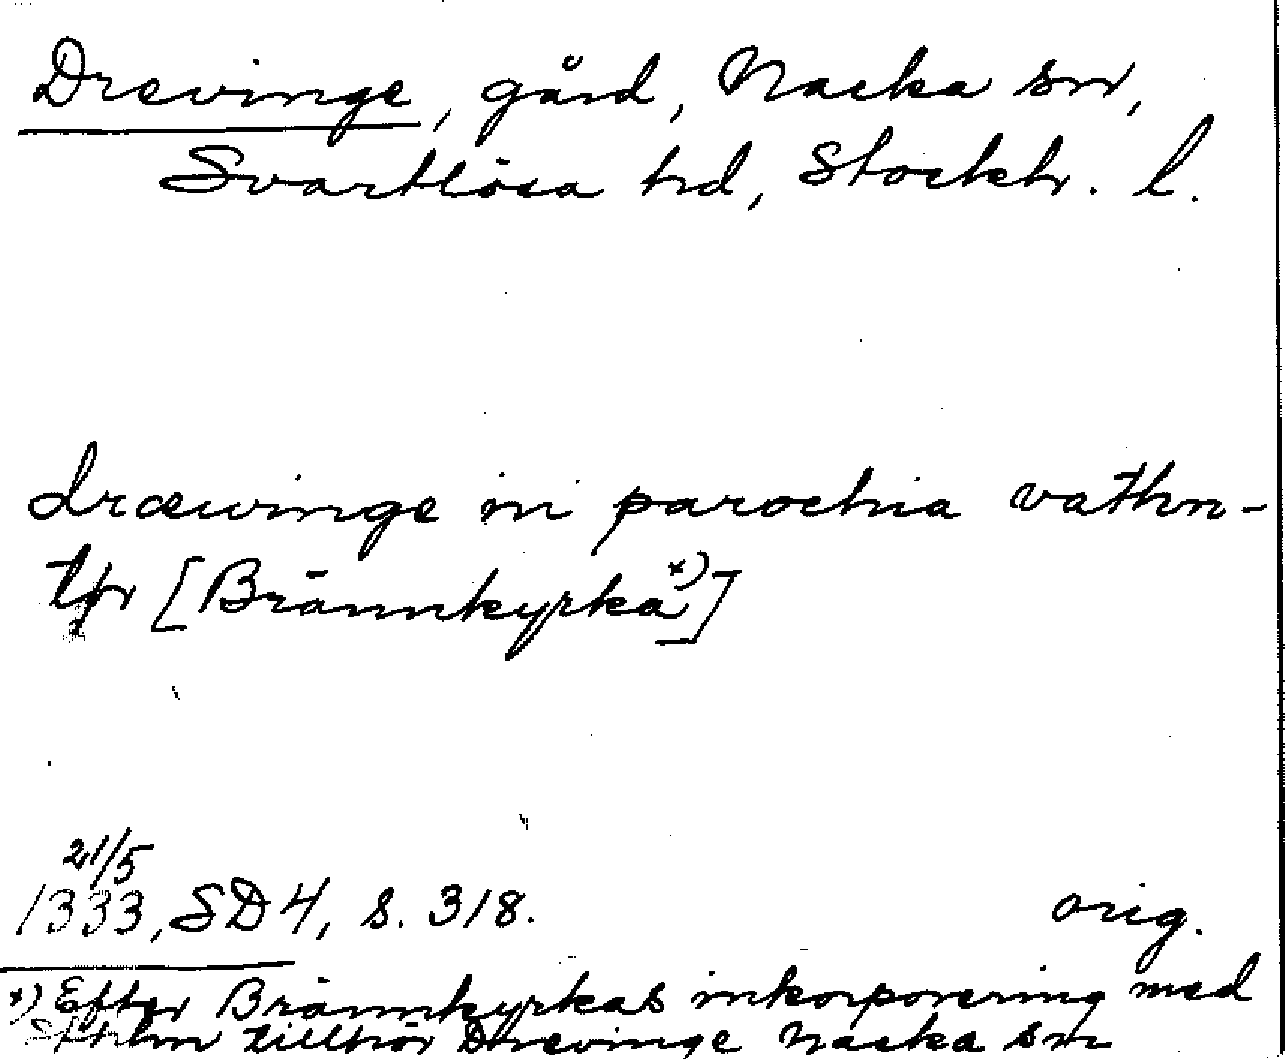 Drevinge, gård, Nacka sn,
Svartlösa hd, Stockh. l.
dræwinge in parochia vathn-
tþr [Brännkyrka*)]
21/5
1333, SD 4, s. 318. orig.
*) Efter Brännkyrkas inkorporering med
Sthlm tillhör Drevinge Nacka sn